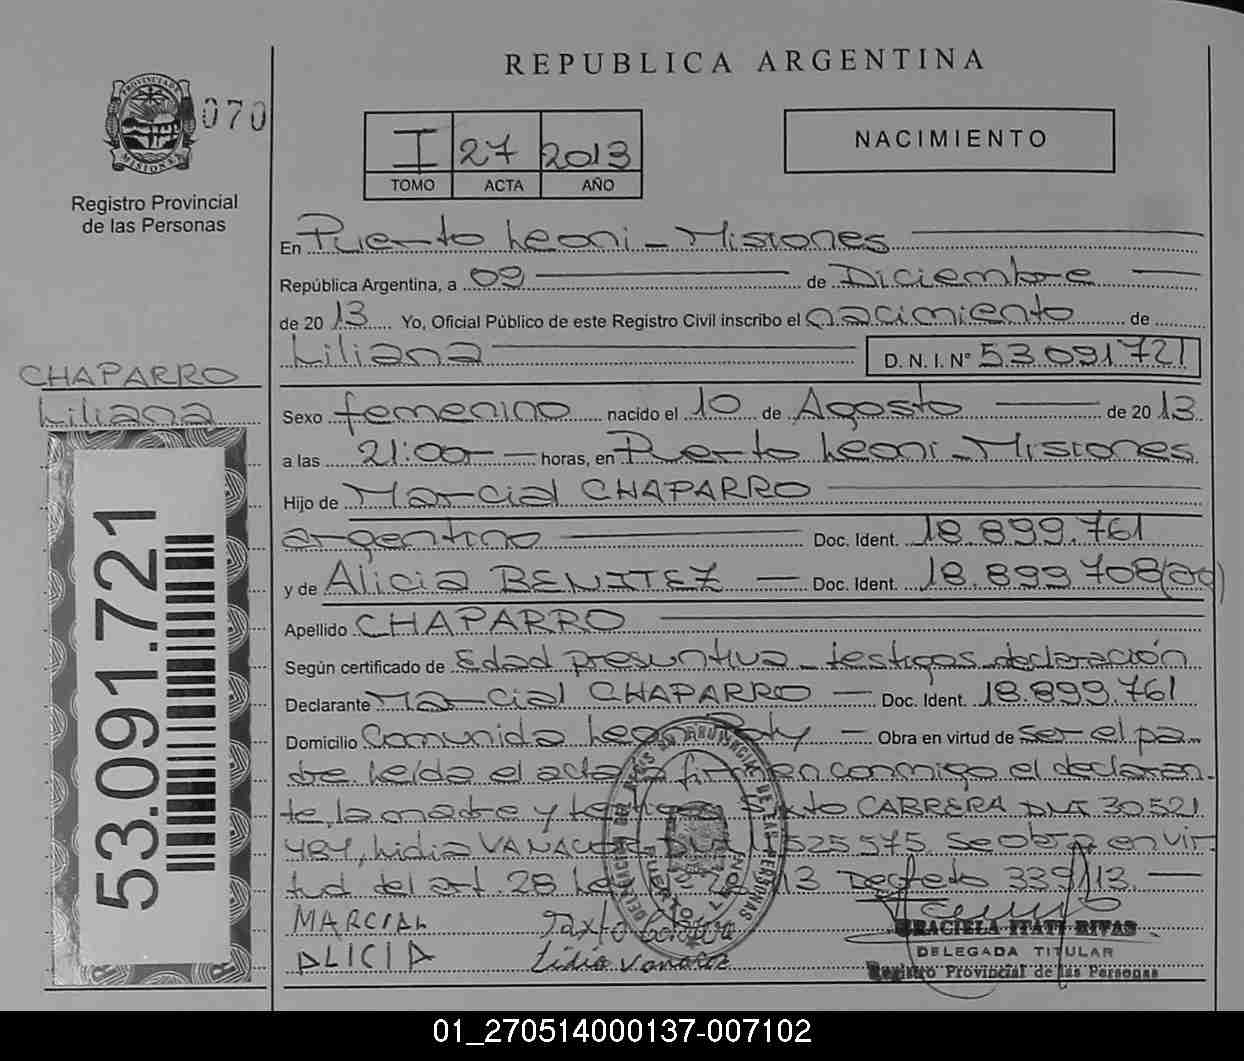 REPUBLICA ARGENTINA
PROVINCIA DE
MISIONES
070
Registro Provincial
de las Personas
I 27 2013
TOMO ACTA AÑO
NACIMIENTO
En Puerto Leoni - Misiones
República Argentina, a 09 de Diciembre
de 20 13 Yo, Oficial Público de este Registro Civil inscribo el nacimiento de
Liliana D. N. I. N° 53.091.721
CHAPARRO
Liliana
Sexo femenino nacido el 10 de Agosto de 20 13
a las 21:00 horas, en Puerto Leoni - Misiones
Hijo de Marcial CHAPARRO
argentino Doc. Ident. 18.899.761
y de Alicia BENITEZ Doc. Ident. 18.899.708
Apellido CHAPARRO
Según certificado de Edad presuntiva - testigos declaración
Declarante Marcial CHAPARRO Doc. Ident. 18.899.761
Domicilio Comunida Poty Obra en virtud de ser el pa
dre. Leída el acta firman conmigo el declaran
te, la madre y testigos Sixto CABRERA DNI 30521
484, Lidia 525575 Se obra en vir
tud del art. 28 13 Decreto 339/13.
MARCIAL
ALICIA
Lidia
GRACIELA ITATI RIVAS
DELEGADA TITULAR
Registro Provincial de las Personas
53.091.721
01_270514000137-007102